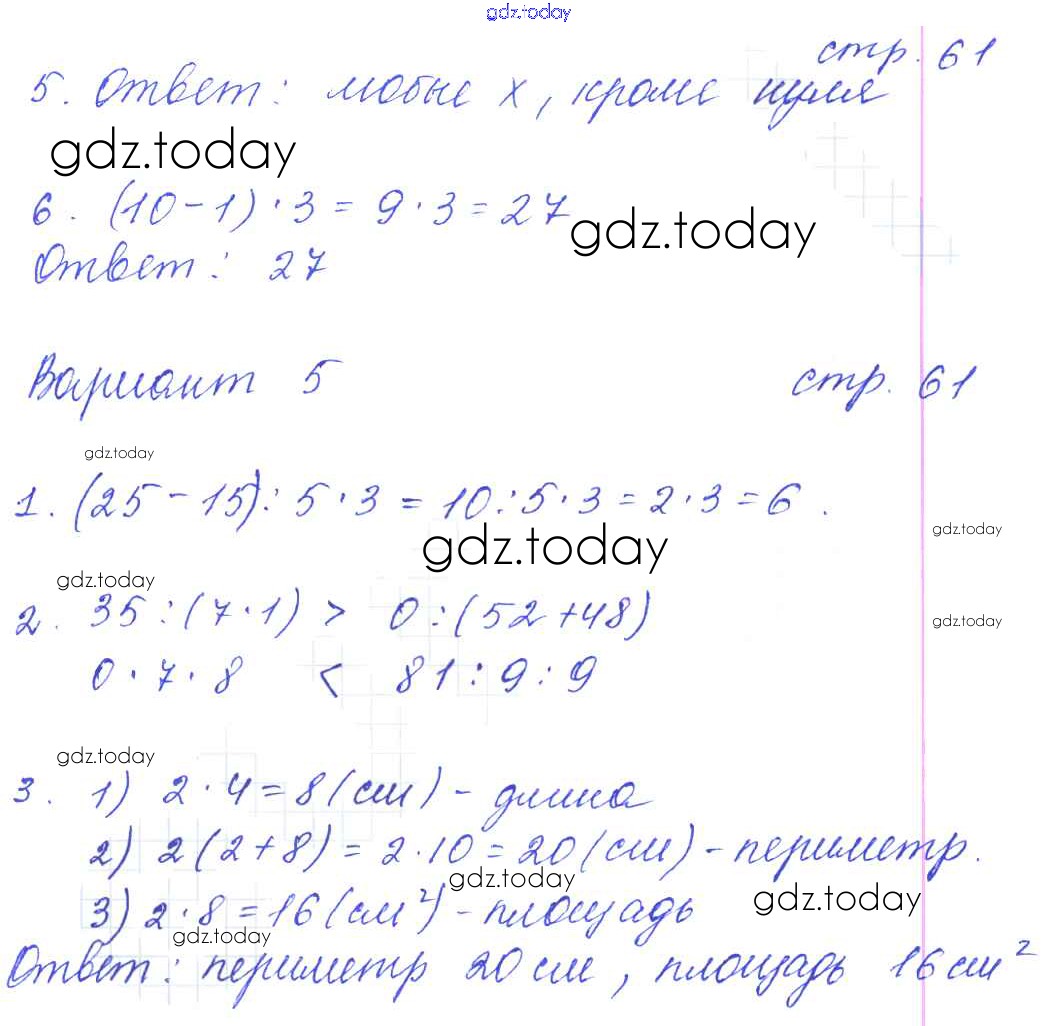 gdz.today
стр. 61
5. Ответ: любые x, кроме нуля
gdz.today
6. (10-1)·3 = 9·3 = 27
gdz.today
Ответ: 27
Вариант 5 стр. 61
gdz.today
1. (25-15):5·3 = 10:5·3 = 2·3 = 6.
gdz.today
gdz.today
gdz.today
2. 35:(7·1) > 0:(52+48)
gdz.today
0·7·8 < 81:9:9
gdz.today
3. 1) 2·4 = 8(см) - длина
2) 2(2+8) = 2·10 = 20(см) - периметр.
gdz.today
gdz.today
3) 2·8 = 16(см²) - площадь
gdz.today
Ответ: периметр 20 см, площадь 16 см²